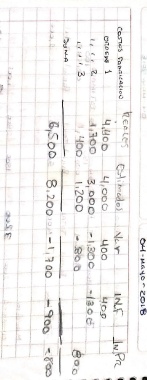 04-Mayo-2018
COSTOS Reales Estimados Var INF
OTIGEN 1 4,400 4,000 400 400
" " 2. 1,300 3,000 -1,300 -1300
" " 3. 400 1,200 -800 800
SUMA 6,500 8,200 -1,700 -900 -800